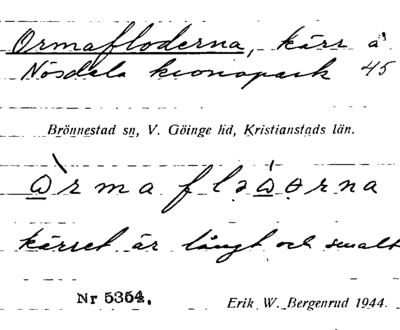 Ormafloderna, kärr å
Nösdala kronopark 45
Brönnestad sn, V. Göinge hd, Kristianstads län.
kärret är långt och smalt
Nr 5354.
Erik W. Bergenrud 1944.